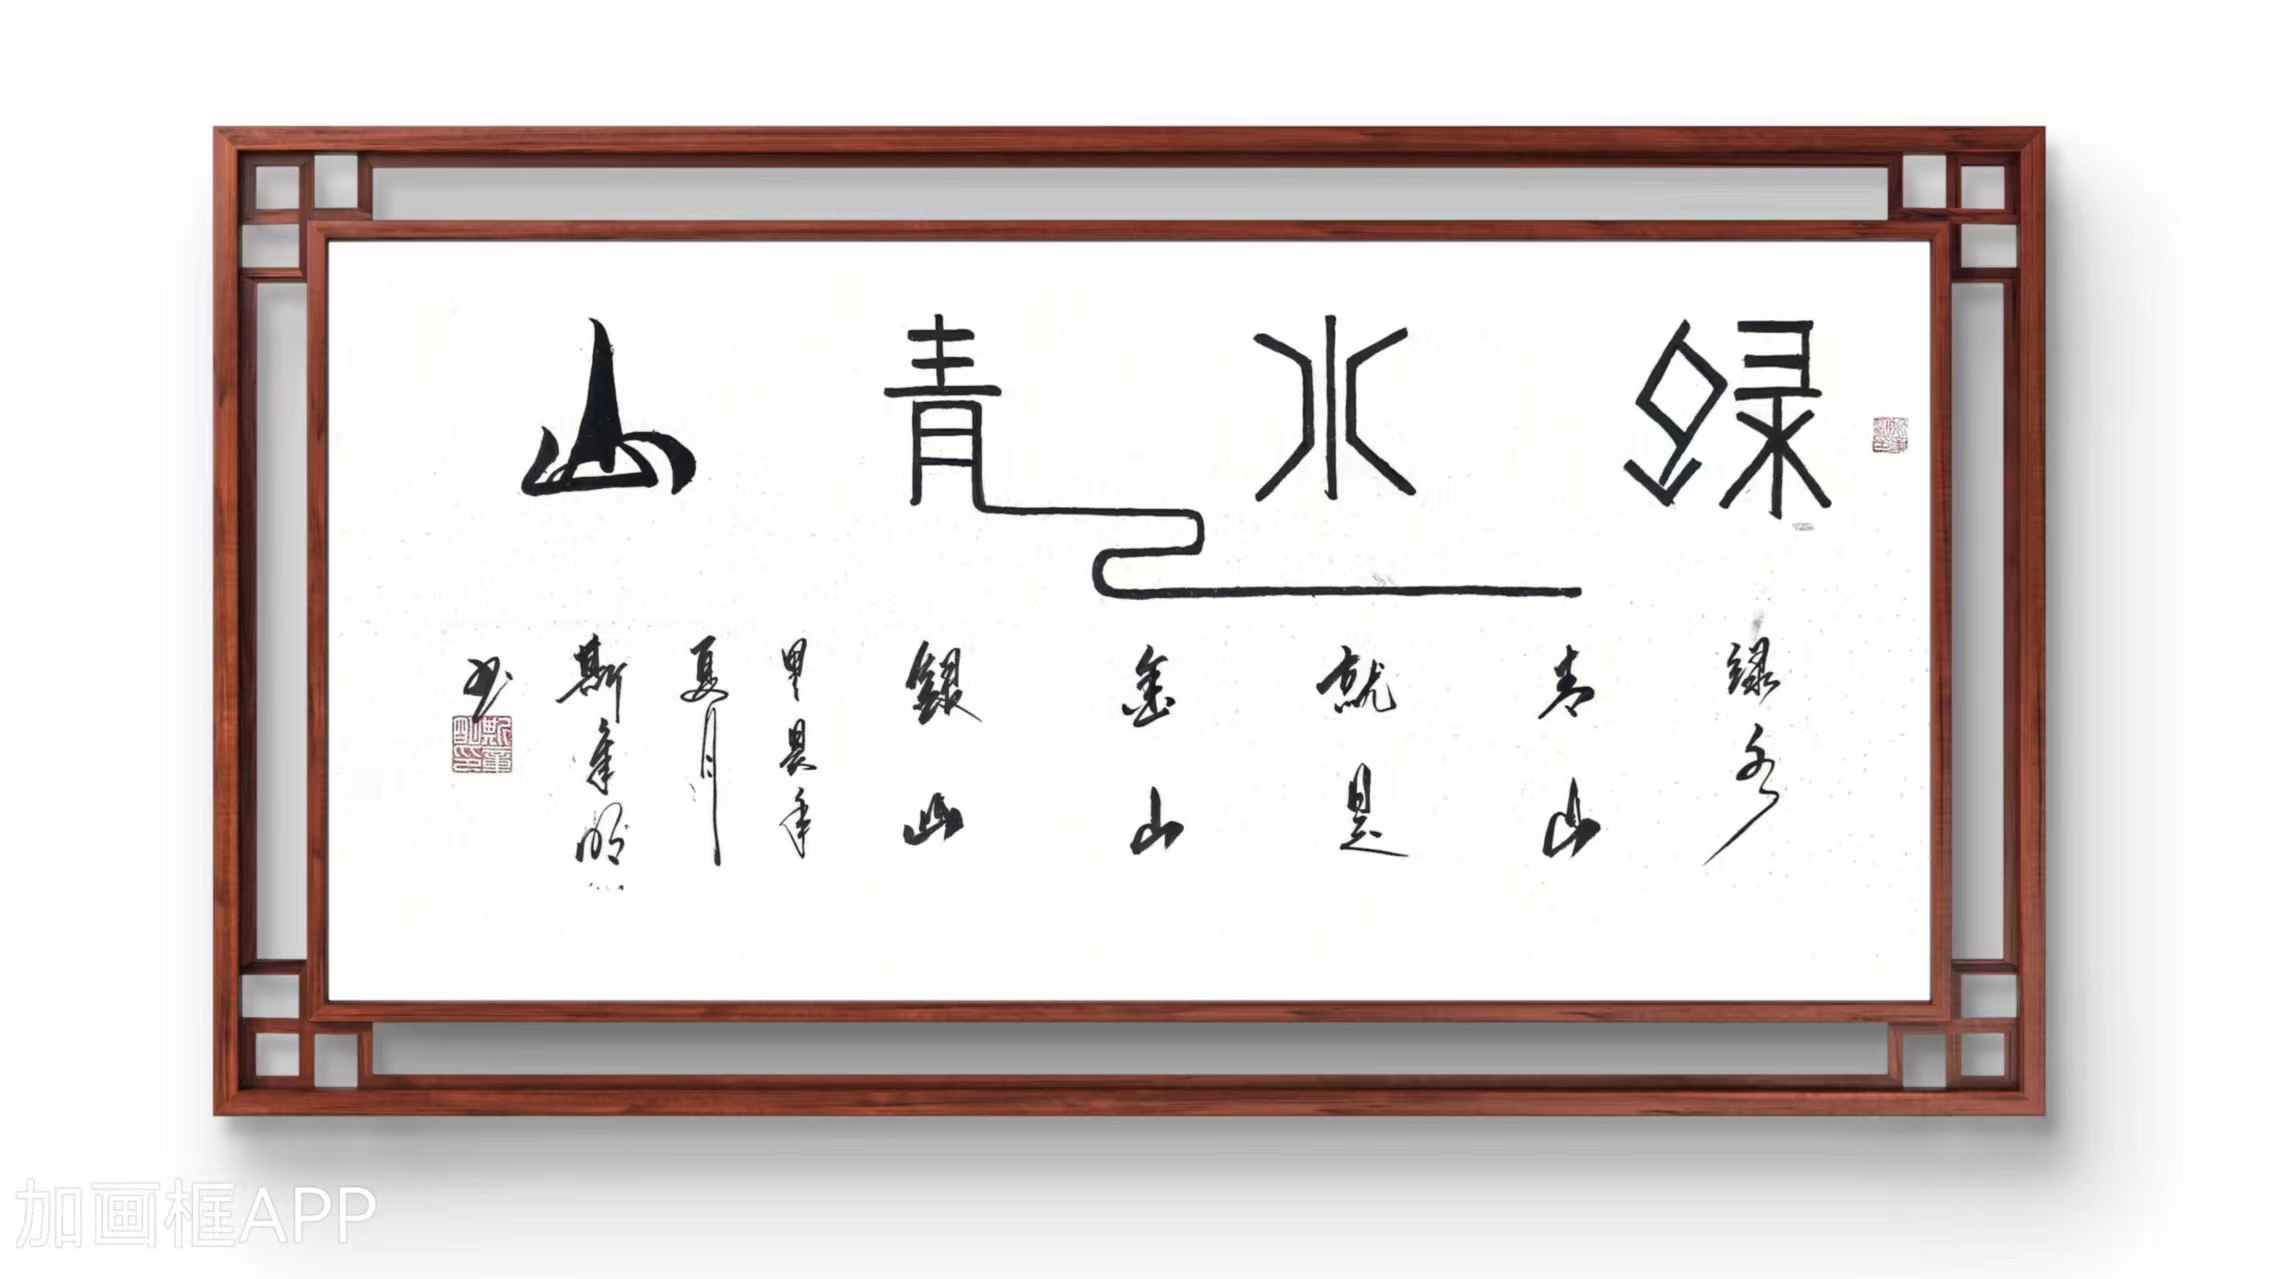 绿水青山
绿水
青山
就是
金山
银山
甲辰年
夏月
斯军明
书
加画框APP